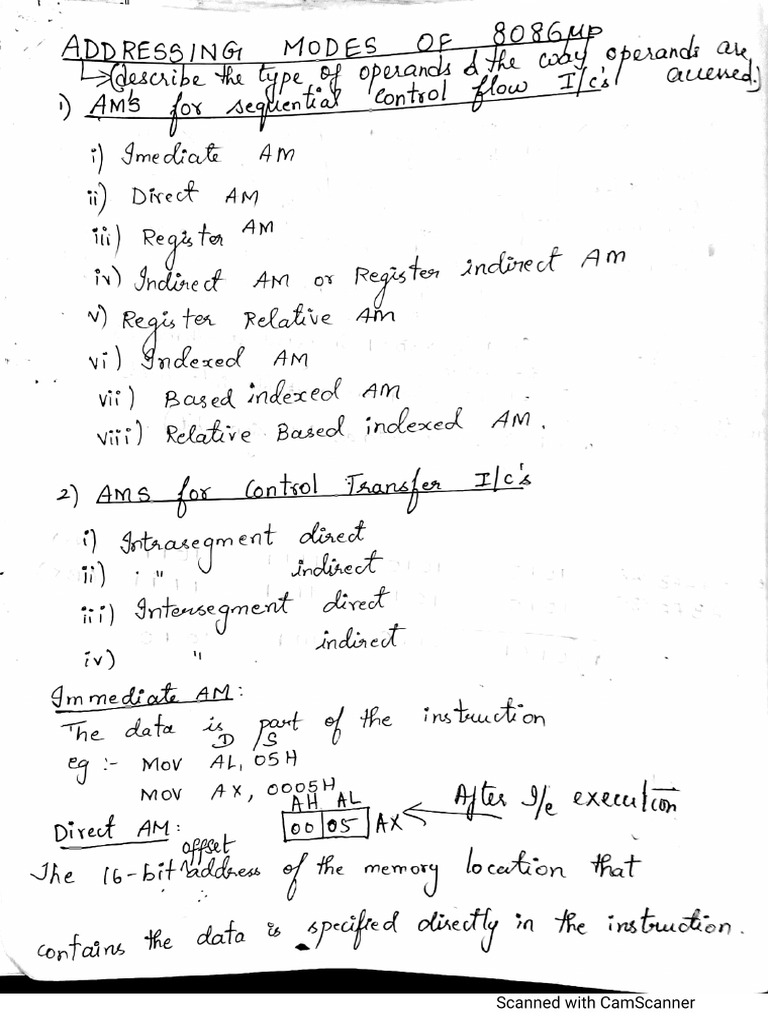 ADDRESSING MODES OF 8086μP
↳(describe the type of operands & the way operands are accessed.)
1) AM's for sequential control flow I/c's
i) Imediate AM
ii) Direct AM
iii) Register AM
iv) Indirect AM or Register indirect AM
v) Register Relative AM
vi) Indexed AM
vii) Based indexed AM
viii) Relative Based indexed AM.
2) AMS for Control Transfer I/c's
i) Intrasegment direct
ii) " indirect
iii) Intersegment direct
iv) " indirect
Immediate AM:
The data is part of the instruction
D /S
eg :- MOV AL, 05H
MOV AX, 0005H
AH AL
00 05 AX ← After I/c execution
Direct AM:
offset
The 16-bit address of the memory location that
contains the data is specified directly in the instruction.
Scanned with CamScanner